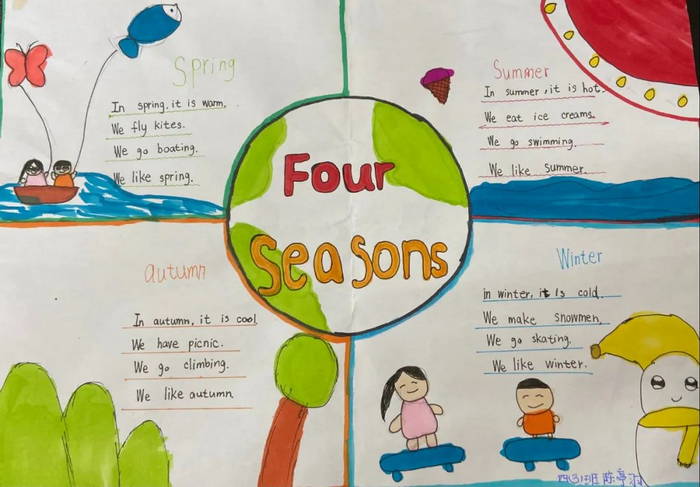 Spring
In spring, it is warm.
We fly kites.
We go boating.
We like spring.
Summer
In summer, it is hot.
We eat ice creams.
We go swimming.
We like summer.
Four
Seasons
autumn
In autumn, it is cool
We have picnic.
We go climbing.
We like autumn
Winter
in winter, it is cold.
We make snowmen.
We go skating.
We like winter.
四(3)班 陈亭